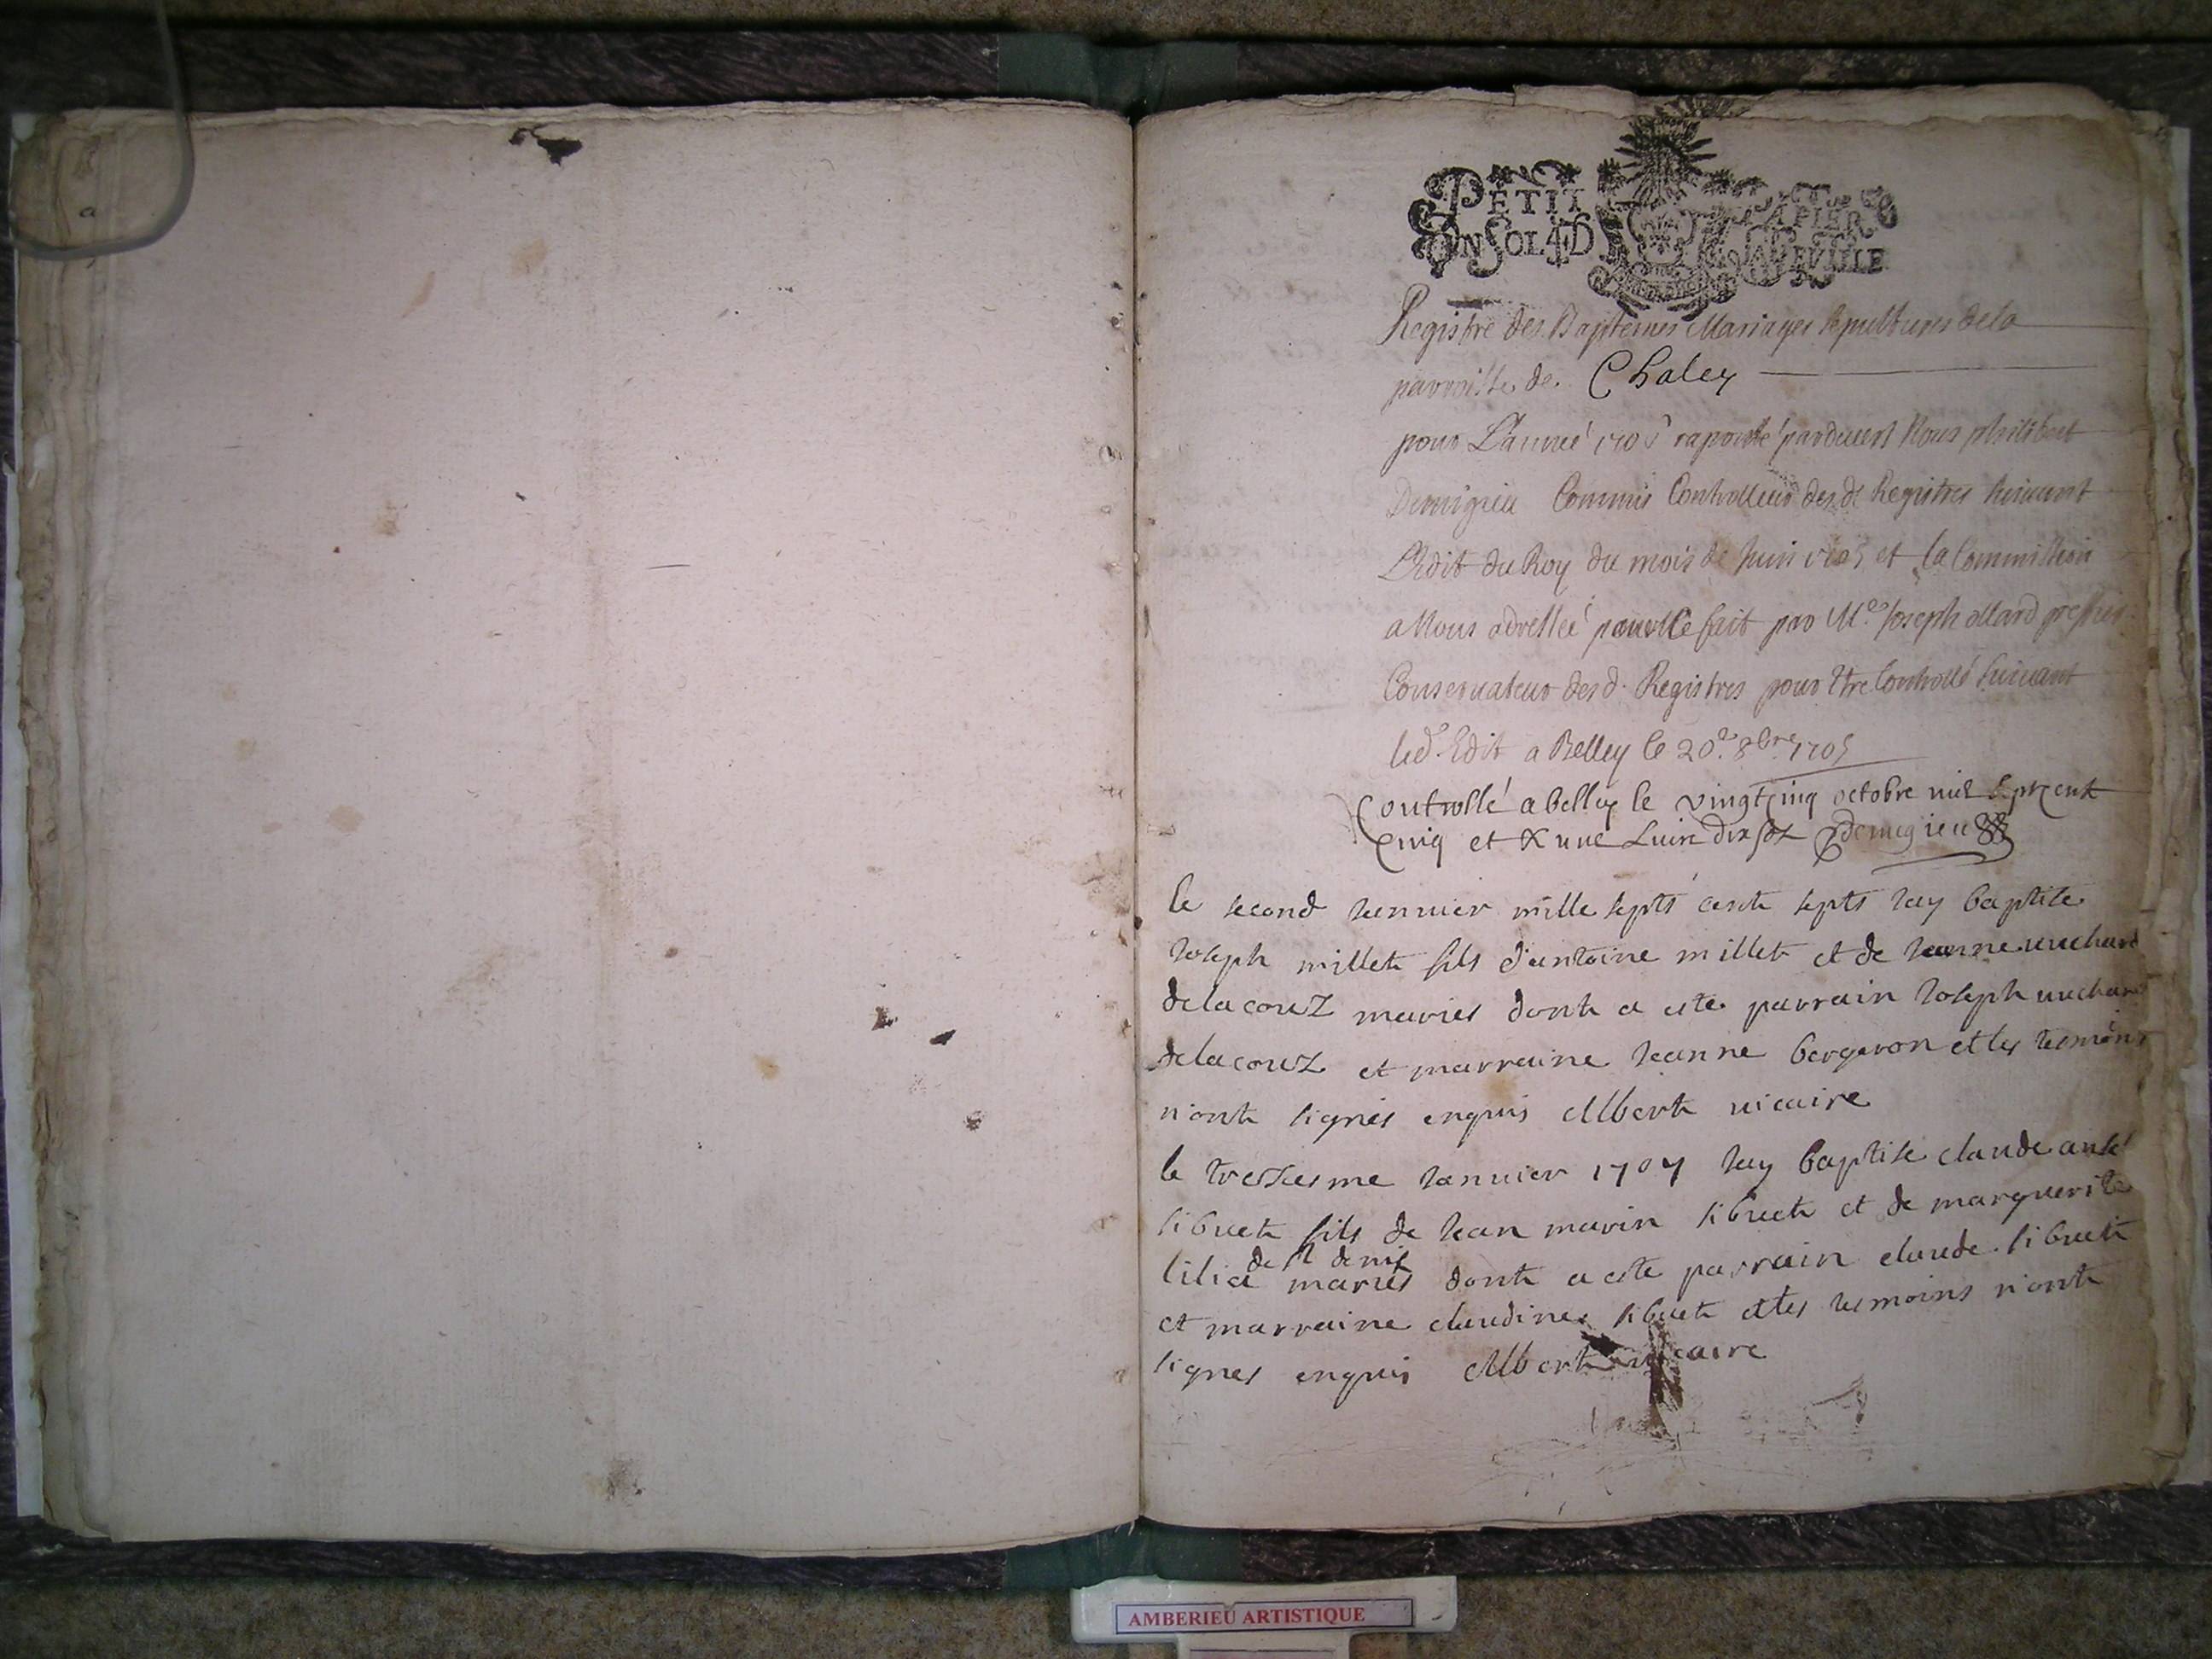 PETIT PAPIER
UN SOL 4 D
Registre des Baptemes Mariages sepultures de la
parroisse de Chaley
pour L'année 1705 raporté pardevent Nous philibert
Demigieu Commis Controlleur desd. Registres suivant
L'Edit du Roy du mois de Juin 1705 et la Commission
a Nous adressée pour ce fait par Me. Joseph ollard greffier
Conservateur desd. Registres pour Etre Controllé suivant
led. Edit a Belley le 20e. 8bre. 1705
Controllé a belley le vingtcinq octobre mil septcent
cinq et R une Livre dix solz Demigieu
le second Jeanvier mille septs cents septs Jay baptise
Joseph millet fils d'antoine millet et de Jeanne uuchard
delacouz maries dont a este parrain Joseph uuchard
delacouz et marraine Jeanne bergeron et les tesmoins
n'ont signés enquis Albert vicaire
le tresiesme Janvier 1707 Jay baptise claude
sibuet fils de Jean marin sibuet et de marguerite
de st denis
maries dont a este parrain claude sibuet
et marraine claudine sibuet et les tesmoins n'ont
signes enquis Albert vicaire
AMBERIEU ARTISTIQUE